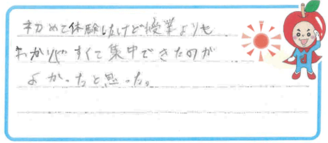 初めて体験したけど授業よりも
わかりやすくて集中できたのが
よかったと思った。